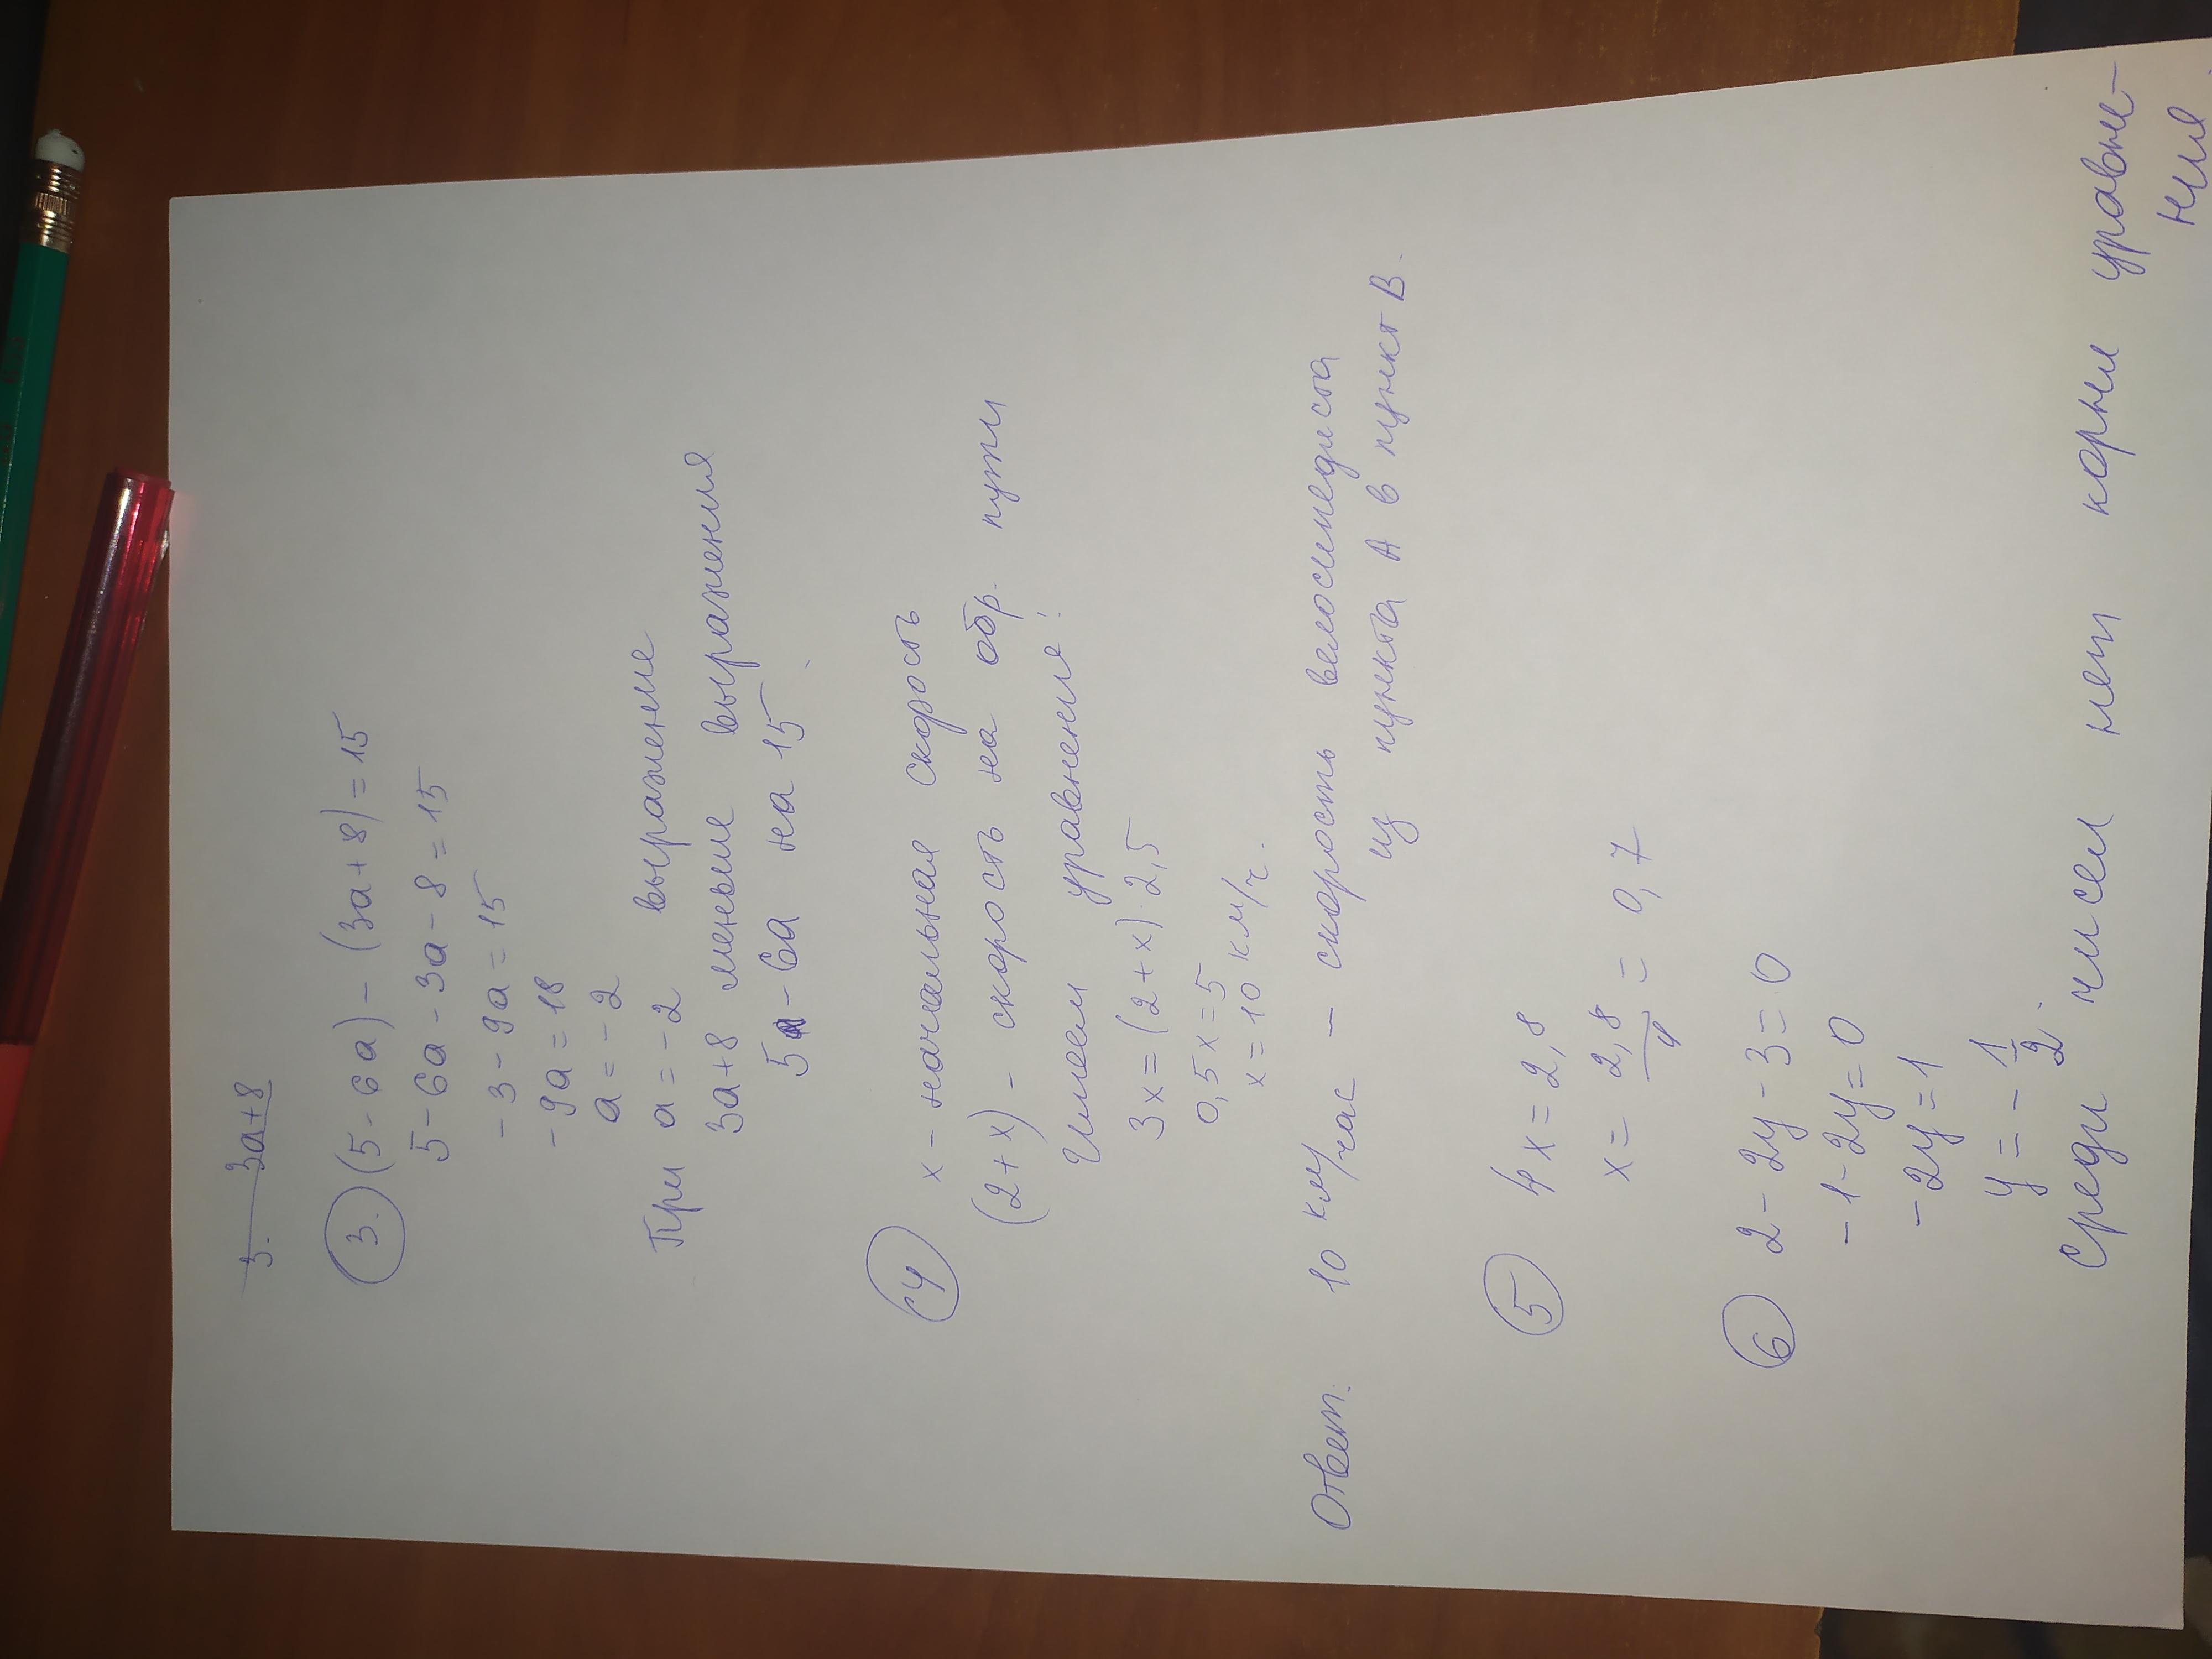 3. 3a+8
3. (5-6a)-(3a+8)=15
5-6a-3a-8=15
-3-9a=15
-9a=18
a=-2
При a=-2 выражение
3a+8 меньше выражения
5-6a на 15
С4 x - начальная скорость
(2+x) - скорость на обр. пути
Имеем уравнения:
3x=(2+x)·2,5
0,5x=5
x=10 км/ч.
Ответ: 10 км/час - скорость велосипедиста
из пункта А в пункт В.
5 4x=2,8
x=2,8/4=0,7
6 2-2y-3=0
-1-2y=0
-2y=1
y=-1/2.
Среди чисел нет корни уравне-
ния